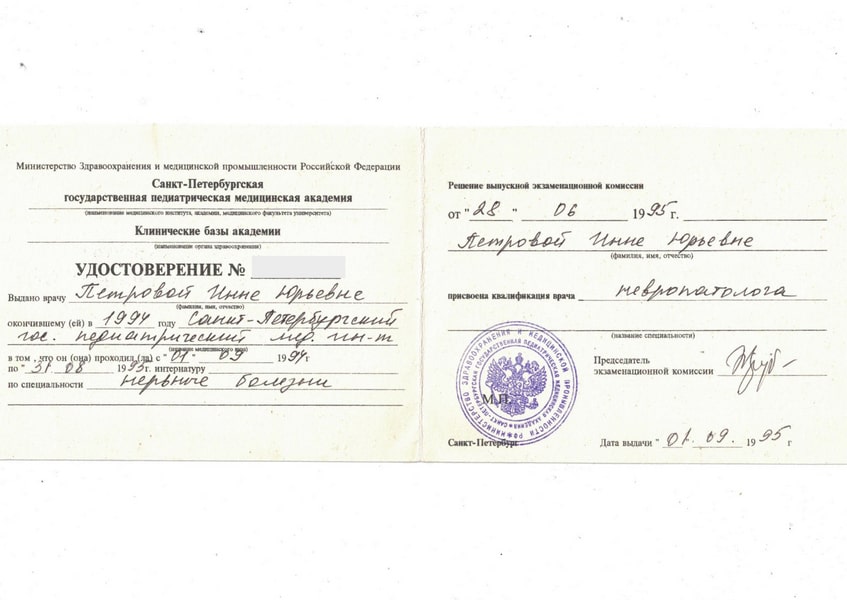 Министерство Здравоохранения и медицинской промышленности Российской Федерации
Санкт-Петербургская
государственная педиатрическая медицинская академия
(наименование медицинского института, академии, медицинского факультета университета)
Клинические базы академии
(наименование органа здравоохранения)
УДОСТОВЕРЕНИЕ №
Выдано врачу Петровой Инне Юрьевне
(фамилия, имя, отчество)
окончившему (ей) в 1994 году Санкт-Петербургский
гос. педиатрический мед. ин-т
(название медицинского вуза)
в том , что он (она) проходил (ла) с "01" 09 1994г
по "31" 08 1995г. интернатуру
по специальности нервные болезни
Решение выпускной экзаменационной комиссии
от "28" 06 1995г.
Петровой Инне Юрьевне
(фамилия, имя, отчество)
присвоена квалификация врача невропатолога
(название специальности)
Председатель
экзаменационной комиссии
М.П.
Санкт-Петербург
Дата выдачи "01. 09. 1995 г
МИНИСТЕРСТВО ЗДРАВООХРАНЕНИЯ И МЕДИЦИНСКОЙ ПРОМЫШЛЕННОСТИ РФ
САНКТ-ПЕТЕРБУРГСКАЯ ГОСУДАРСТВЕННАЯ ПЕДИАТРИЧЕСКАЯ МЕДИЦИНСКАЯ АКАДЕМИЯ